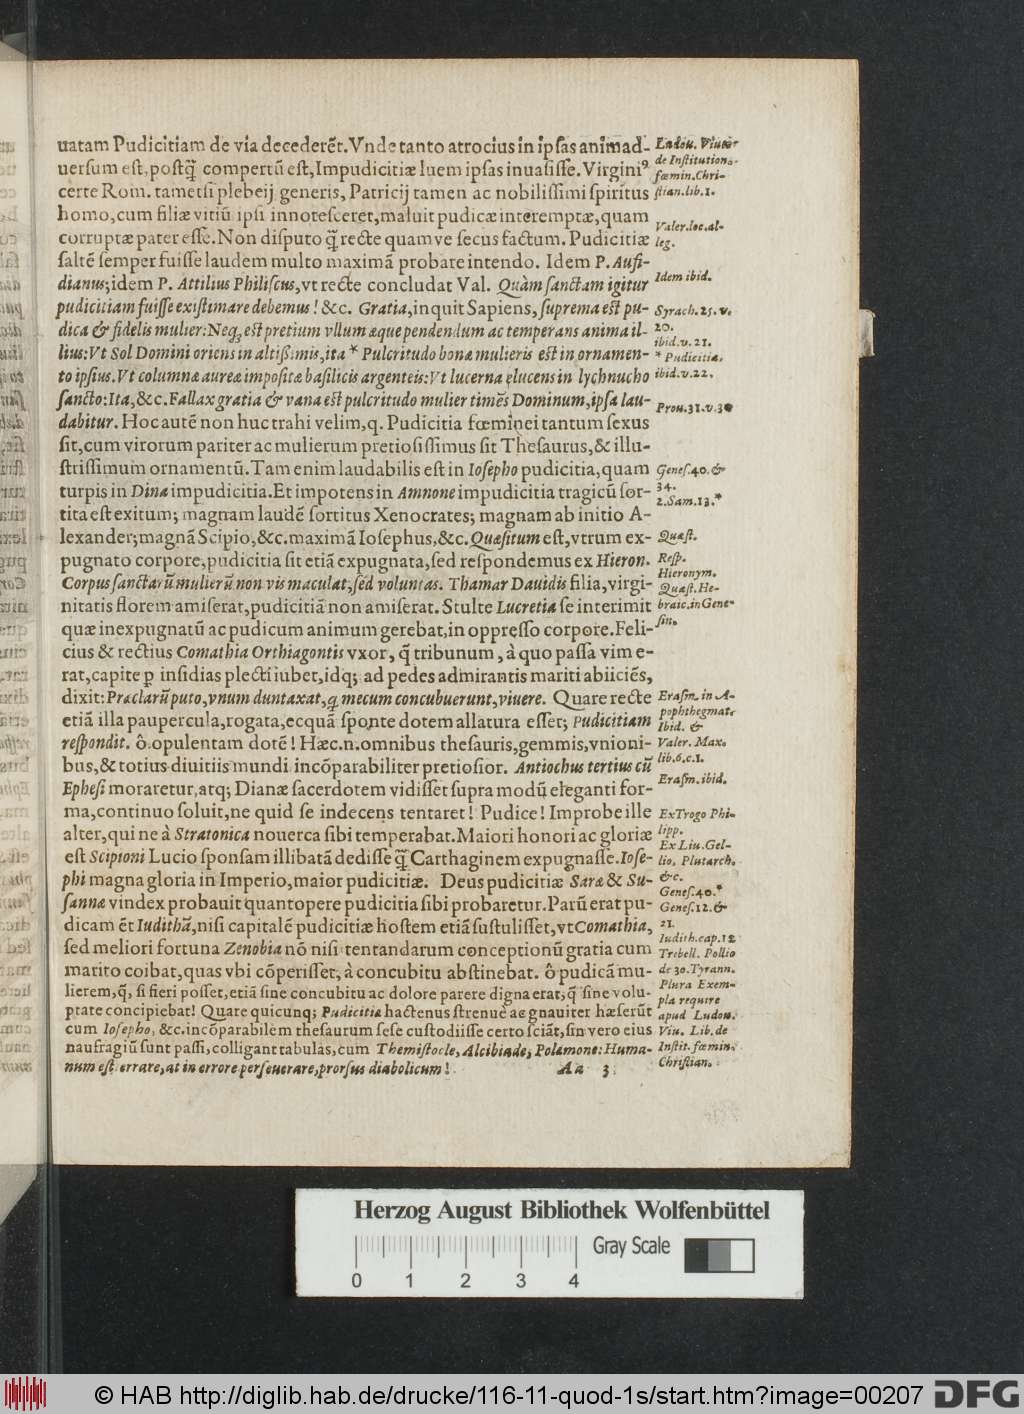 uatam Pudicitiam de via decederẽt. Vnde tanto atrocius in ipſas animad-
uerſum eſt, poſtq̃ compertũ eſt, Impudicitiæ luem ipſas inuaſiſſe. Virginiꝰ
certe Rom. tametſi plebeij generis, Patricij tamen ac nobiliſſimi ſpiritus
homo, cum filiæ vitiũ ipſi innoteſceret, maluit pudicæ interemptæ, quam
corruptæ pater eſſe. Non diſputo q̃ recte quamve ſecus factum. Pudicitiæ
ſaltẽ ſemper fuiſſe laudem multo maximã probare intendo. Idem P. Aufi-
dianus; idem P. Attilius Philiſcus, vt recte concludat Val. Quàm ſanctam igitur
pudicitiam fuiſſe exiſtimare debemus! &c. Gratia, inquit Sapiens, ſuprema eſt pu-
dica & fidelis mulier: Neq; eſt pretium vllum æque pendendum ac temperans anima il-
lius: Vt Sol Domini oriens in altißimis, ita * Pulcritudo bonæ mulieris eſt in ornamen-
to ipſius. Vt columnæ aureæ impoſitæ baſilicis argenteis: Vt lucerna elucens in lychnucho
ſancto: Ita, &c. Fallax gratia & vana eſt pulcritudo mulier timẽs Dominum, ipſa lau-
dabitur. Hoc autẽ non huc trahi velim, q. Pudicitia fœminei tantum ſexus
ſit, cum virorum pariter ac mulierum pretioſiſſimus ſit Theſaurus, & illu-
ſtriſſimum ornamentũ. Tam enim laudabilis eſt in Ioſepho pudicitia, quam
turpis in Dina impudicitia. Et impotens in Amnone impudicitia tragicũ ſor-
tita eſt exitum; magnam laudẽ ſortitus Xenocrates; magnam ab initio A-
lexander; magnã Scipio, &c. maximã Ioſephus, &c. Quæſitum eſt, vtrum ex-
pugnato corpore, pudicitia ſit etiã expugnata, ſed reſpondemus ex Hieron.
Corpus ſanctarũ mulierũ non vis maculat, ſed voluntas. Thamar Dauidis filia, virgi-
nitatis florem amiſerat, pudicitiã non amiſerat. Stulte Lucretia ſe interimit
quæ inexpugnatũ ac pudicum animum gerebat, in oppreſſo corpore. Feli-
cius & rectius Comathia Orthiagontis vxor, q̃ tribunum, à quo paſſa vim e-
rat, capite ꝑ inſidias plecti iubet, idq; ad pedes admirantis mariti abiiciẽs,
dixit: Præclarũ puto, vnum duntaxat, q mecum concubuerunt, viuere. Quare recte
etiã illa paupercula, rogata, ecquã ſponte dotem allatura eſſet; Pudicitiam
reſpondit. ô opulentam dotẽ! Hæc.n. omnibus theſauris, gemmis, vnioni-
bus, & totius diuitiis mundi incõparabiliter pretioſior. Antiochus tertius cũ
Epheſi moraretur, atq; Dianæ ſacerdotem vidiſſet ſupra modũ eleganti for-
ma, continuo ſoluit, ne quid ſe indecens tentaret! Pudice! Improbe ille
alter, qui ne à Stratonica nouerca ſibi temperabat. Maiori honori ac gloriæ
eſt Scipioni Lucio ſponſam illibatã dediſſe q̃ Carthaginem expugnaſſe. Ioſe-
phi magna gloria in Imperio, maior pudicitiæ. Deus pudicitiæ Saræ & Su-
ſannæ vindex probauit quantopere pudicitia ſibi probaretur. Parũ erat pu-
dicam ẽt Iudithã, niſi capitalẽ pudicitiæ hoſtem etiã ſuſtuliſſet, vt Comathia,
ſed meliori fortuna Zenobia nõ niſi tentandarum conceptionũ gratia cum
marito coibat, quas vbi cõperiſſet, à concubitu abſtinebat. ô pudicã mu-
lierem, q̃, ſi fieri poſſet, etiã ſine concubitu ac dolore parere digna erat, q̃ ſine volu-
ptate concipiebat! Quare quicunq; Pudicitia hactenus ſtrenuè ac gnauiter hæſerũt
cum Ioſepho, &c. incõparabilem theſaurum ſeſe cuſtodiiſſe certo ſciãt, ſin vero eius
naufragiũ ſunt paſſi, colligant tabulas, cum Themiſtocle, Alcibiade, Polemone: Huma-
num eſt errare, at in errore perſeuerare, prorſus diabolicum!
Aa 3
Ludou. Viues
de Inſtitution.
fœmin. Chri-
ſtian. lib. 1.
Valer. loc. al-
leg.
Idem ibid.
Syrach. 25. v.
20.
ibid. v. 21.
* Pudicitia.
ibid. v. 22.
Prou. 31. v. 30
Geneſ. 40. &
34.
2. Sam. 13. *
Quæſt.
Reſp.
Hieronym.
Quæſt. He-
braic. in Gene-
ſin.
Eraſm. in A-
pophthegmat.
Ibid. &
Valer. Max.
lib. 6. c. 1.
Eraſm. ibid.
Ex Trogo Phi-
lipp.
Ex Liu. Gel-
lio, Plutarch.
&c.
Geneſ. 40. *
Geneſ. 12. &
21.
Iudith. cap. 12
Trebell. Pollio
de 30. Tyrann.
Plura Exem-
pla require
apud Ludou.
Viu. Lib. de
Inſtit. fœmin.
Chriſtian.
Herzog August Bibliothek Wolfenbüttel
Gray Scale
0 1 2 3 4
© HAB http://diglib.hab.de/drucke/116-11-quod-1s/start.htm?image=00207
DFG